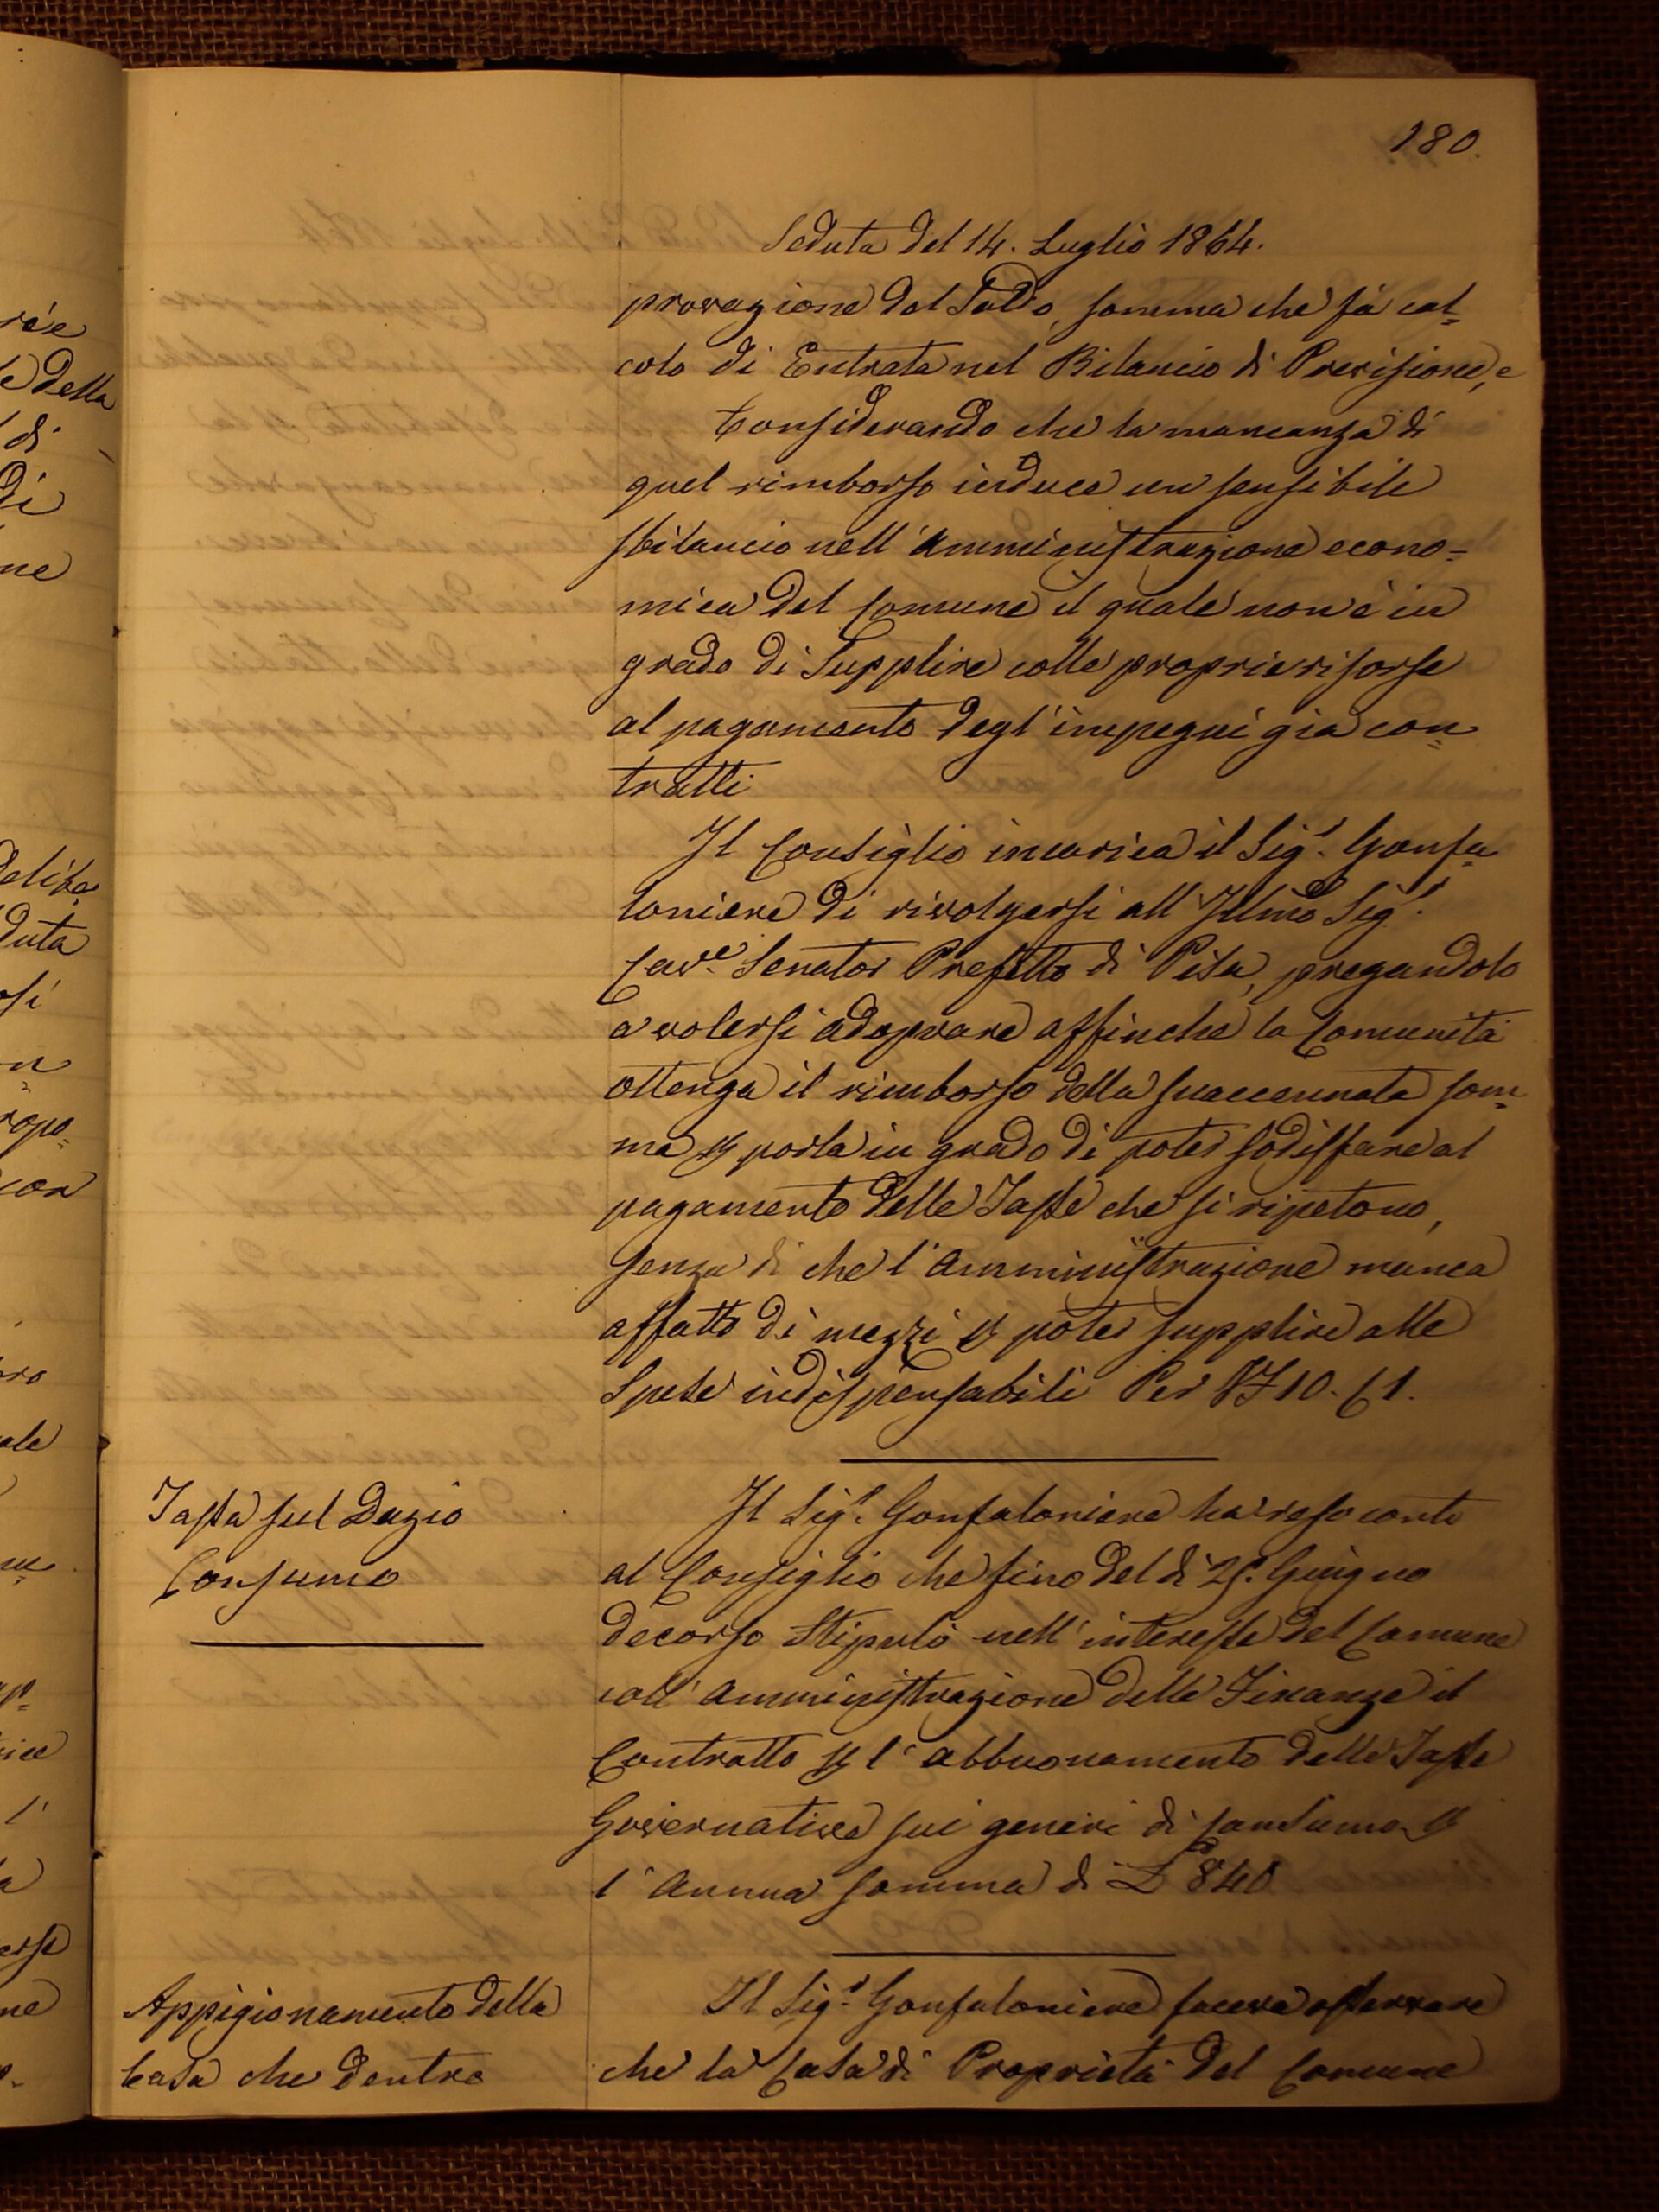 180.
Seduta del 14. Luglio 1864.
provazione del Saldo, somma che fà cal=
colo di Entrata nel Bilancio di Previsione, e
Considerando che la mancanza di
quel rimborso induce un sensibile
sbilancio nell'amministrazione econo=
mica del Comune il quale non è in
grado di Supplire colle proprie risorse
al pagamento degl'impegni gia con=
tratti
Il Consiglio incarica il Sig.r Gonfa=
loniere di rivolgersi all'Illmo Sig.r
Cav.e Senator Prefetto di Pisa, pregandolo
a volersi adoprare affinche la Comunità
ottenga il rimborso della suaccennata som=
ma p porla in grado di poter sodisfare al
pagamento delle Tasse che si ripetono,
senza di che l'amministrazione manca
affatto di mezzi p poter supplire alle
Spese indispensabili Per VF 10. C 1.
Tassa sul Dazio
Consumo
Il Sig.r Gonfaloniere ha reso conto
al Consiglio che fino del dì 25. Giugno
decorso Stipulò nell'interesse del Comune
coll'amministrazione delle Finanze il
Contratto p l'abbuonamento delle Tasse
Governative sui generi di Consumo p
l'annua somma di L 840
Appigionamento della
Casa che dentro
Il Sig.r Gonfaloniere faceva osservare
che la Casa di Proprietà del Comune
rée
della
di
di
ne
Delibe=
duta
osi
n=
ropo=
con
ale
l'
erse
ne